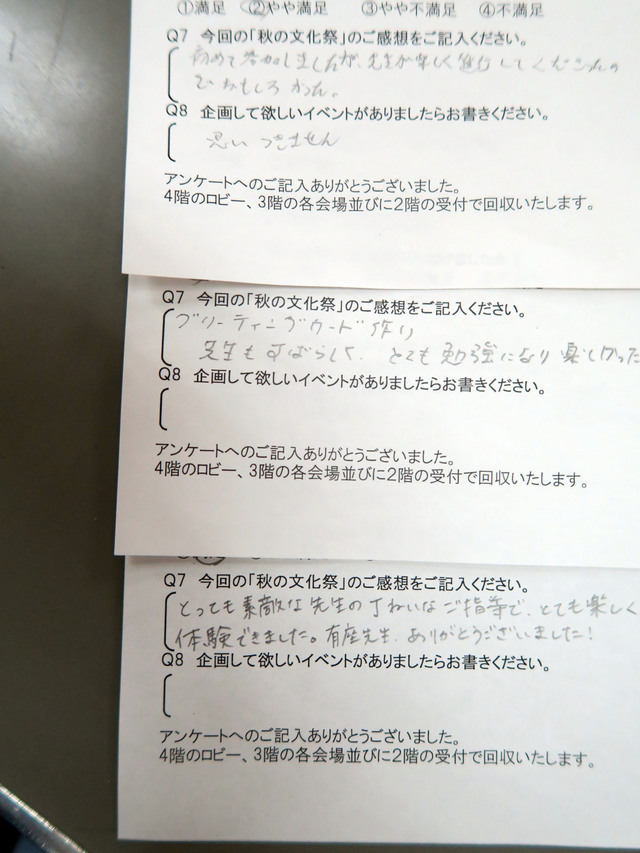 ①満足 ②やや満足 ③やや不満足 ④不満足
Q7 今回の「秋の文化祭」のご感想をご記入ください。
初めて参加しましたが、先生が楽しく進行してくださったの
でおもしろかった。
Q8 企画して欲しいイベントがありましたらお書きください。
思いつきません
アンケートへのご記入ありがとうございました。
4階のロビー、3階の各会場並びに2階の受付で回収いたします。
Q7 今回の「秋の文化祭」のご感想をご記入ください。
グリーティングカード作り
先生もすばらしく、とても勉強になり楽しかった
Q8 企画して欲しいイベントがありましたらお書きください。
アンケートへのご記入ありがとうございました。
4階のロビー、3階の各会場並びに2階の受付で回収いたします。
Q7 今回の「秋の文化祭」のご感想をご記入ください。
とっても素敵な先生のていねいなご指導で、とても楽しく
体験できました。有座先生、ありがとうございました!
Q8 企画して欲しいイベントがありましたらお書きください。
アンケートへのご記入ありがとうございました。
4階のロビー、3階の各会場並びに2階の受付で回収いたします。